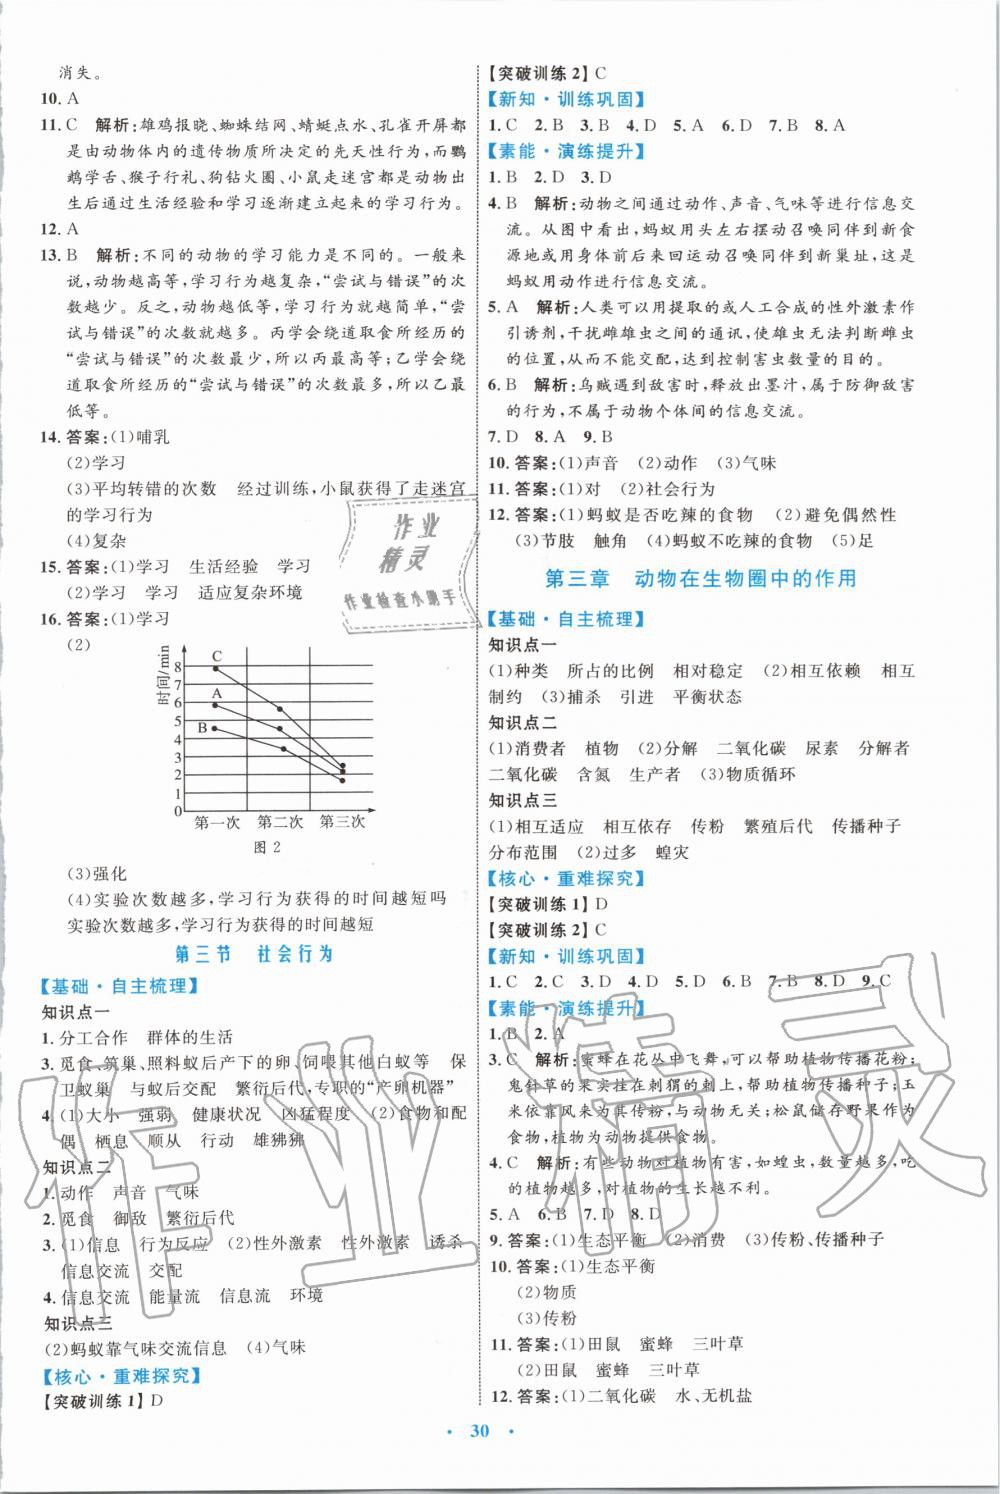 消失。
10. A
11. C　解析:雄鸡报晓、蜘蛛结网、蜻蜓点水、孔雀开屏都
是由动物体内的遗传物质所决定的先天性行为,而鹦
鹉学舌、猴子行礼、狗钻火圈、小鼠走迷宫都是动物出
生后通过生活经验和学习逐渐建立起来的学习行为。
12. A
13. B　解析:不同的动物的学习能力是不同的。一般来
说,动物越高等,学习行为越复杂,“尝试与错误”的次
数越少。反之,动物越低等,学习行为就越简单,“尝
试与错误”的次数就越多。丙学会绕道取食所经历的
“尝试与错误”的次数最少,所以丙最高等;乙学会绕
道取食所经历的“尝试与错误”的次数最多,所以乙最
低等。
14. 答案:(1)哺乳
(2)学习
(3)平均转错的次数　经过训练,小鼠获得了走迷宫
的学习行为
(4)复杂
15. 答案:(1)学习　生活经验　学习
(2)学习　学习　适应复杂环境
16. 答案:(1)学习
(2)
时间/min
8
7
6
5
4
3
2
1
0
C
A
B
第一次　第二次　第三次
图 2
(3)强化
(4)实验次数越多,学习行为获得的时间越短吗
实验次数越多,学习行为获得的时间越短
第三节　社会行为
【基础·自主梳理】
知识点一
1. 分工合作　群体的生活
3. 觅食、筑巢、照料蚁后产下的卵、饲喂其他白蚁等　保
卫蚁巢　与蚁后交配　繁衍后代,专职的“产卵机器”
4. (1)大小　强弱　健康状况　凶猛程度　(2)食物和配
偶　栖息　顺从　行动　雄狒狒
知识点二
1. 动作　声音　气味
2. 觅食　御敌　繁衍后代
3. (1)信息　行为反应　(2)性外激素　性外激素　诱杀
信息交流　交配
4. 信息交流　能量流　信息流　环境
知识点三
(2)蚂蚁靠气味交流信息　(4)气味
【核心·重难探究】
【突破训练 1】D
【突破训练 2】C
【新知·训练巩固】
1. C　2. B　3. B　4. D　5. A　6. D　7. B　8. A
【素能·演练提升】
1. B　2. D　3. D
4. B　解析:动物之间通过动作、声音、气味等进行信息交
流。从图中看出,蚂蚁用头左右摆动召唤同伴到新食
源地或用身体前后来回运动召唤同伴到新巢址,这是
蚂蚁用动作进行信息交流。
5. A　解析:人类可以用提取的或人工合成的性外激素作
引诱剂,干扰雌雄虫之间的通讯,使雄虫无法判断雌虫
的位置,从而不能交配,达到控制害虫数量的目的。
6. B　解析:乌贼遇到敌害时,释放出墨汁,属于防御敌害
的行为,不属于动物个体间的信息交流。
7. D　8. A　9. B
10. 答案:(1)声音　(2)动作　(3)气味
11. 答案:(1)对　(2)社会行为
12. 答案:(1)蚂蚁是否吃辣的食物　(2)避免偶然性
(3)节肢　触角　(4)蚂蚁不吃辣的食物　(5)足
第三章　动物在生物圈中的作用
【基础·自主梳理】
知识点一
(1)种类　所占的比例　相对稳定　(2)相互依赖　相互
制约　(3)捕杀　引进　平衡状态
知识点二
(1)消费者　植物　(2)分解　二氧化碳　尿素　分解者
二氧化碳　含氮　生产者　(3)物质循环
知识点三
(1)相互适应　相互依存　传粉　繁殖后代　传播种子
分布范围　(2)过多　蝗灾
【核心·重难探究】
【突破训练 1】D
【突破训练 2】C
【新知·训练巩固】
1. C　2. C　3. D　4. D　5. D　6. B　7. B　8. D　9. C
【素能·演练提升】
1. B　2. A
3. C　解析:蜜蜂在花丛中飞舞,可以帮助植物传播花粉;
鬼针草的果实挂在刺猬的刺上,帮助植物传播种子;玉
米依靠风来为其传粉,与动物无关;松鼠储存野果作为
食物,植物为动物提供食物。
4. C　解析:有些动物对植物有害,如蝗虫,数量越多,吃
的植物越多,对植物的生长越不利。
5. A　6. B　7. D　8. D
9. 答案:(1)生态平衡　(2)消费　(3)传粉、传播种子
10. 答案:(1)生态平衡
(2)物质
(3)传粉
11. 答案:(1)田鼠　蜜蜂　三叶草
(2)田鼠　蜜蜂　三叶草
12. 答案:(1)二氧化碳　水、无机盐
· 30 ·
作业
精灵
作业检查小助手
作业精灵